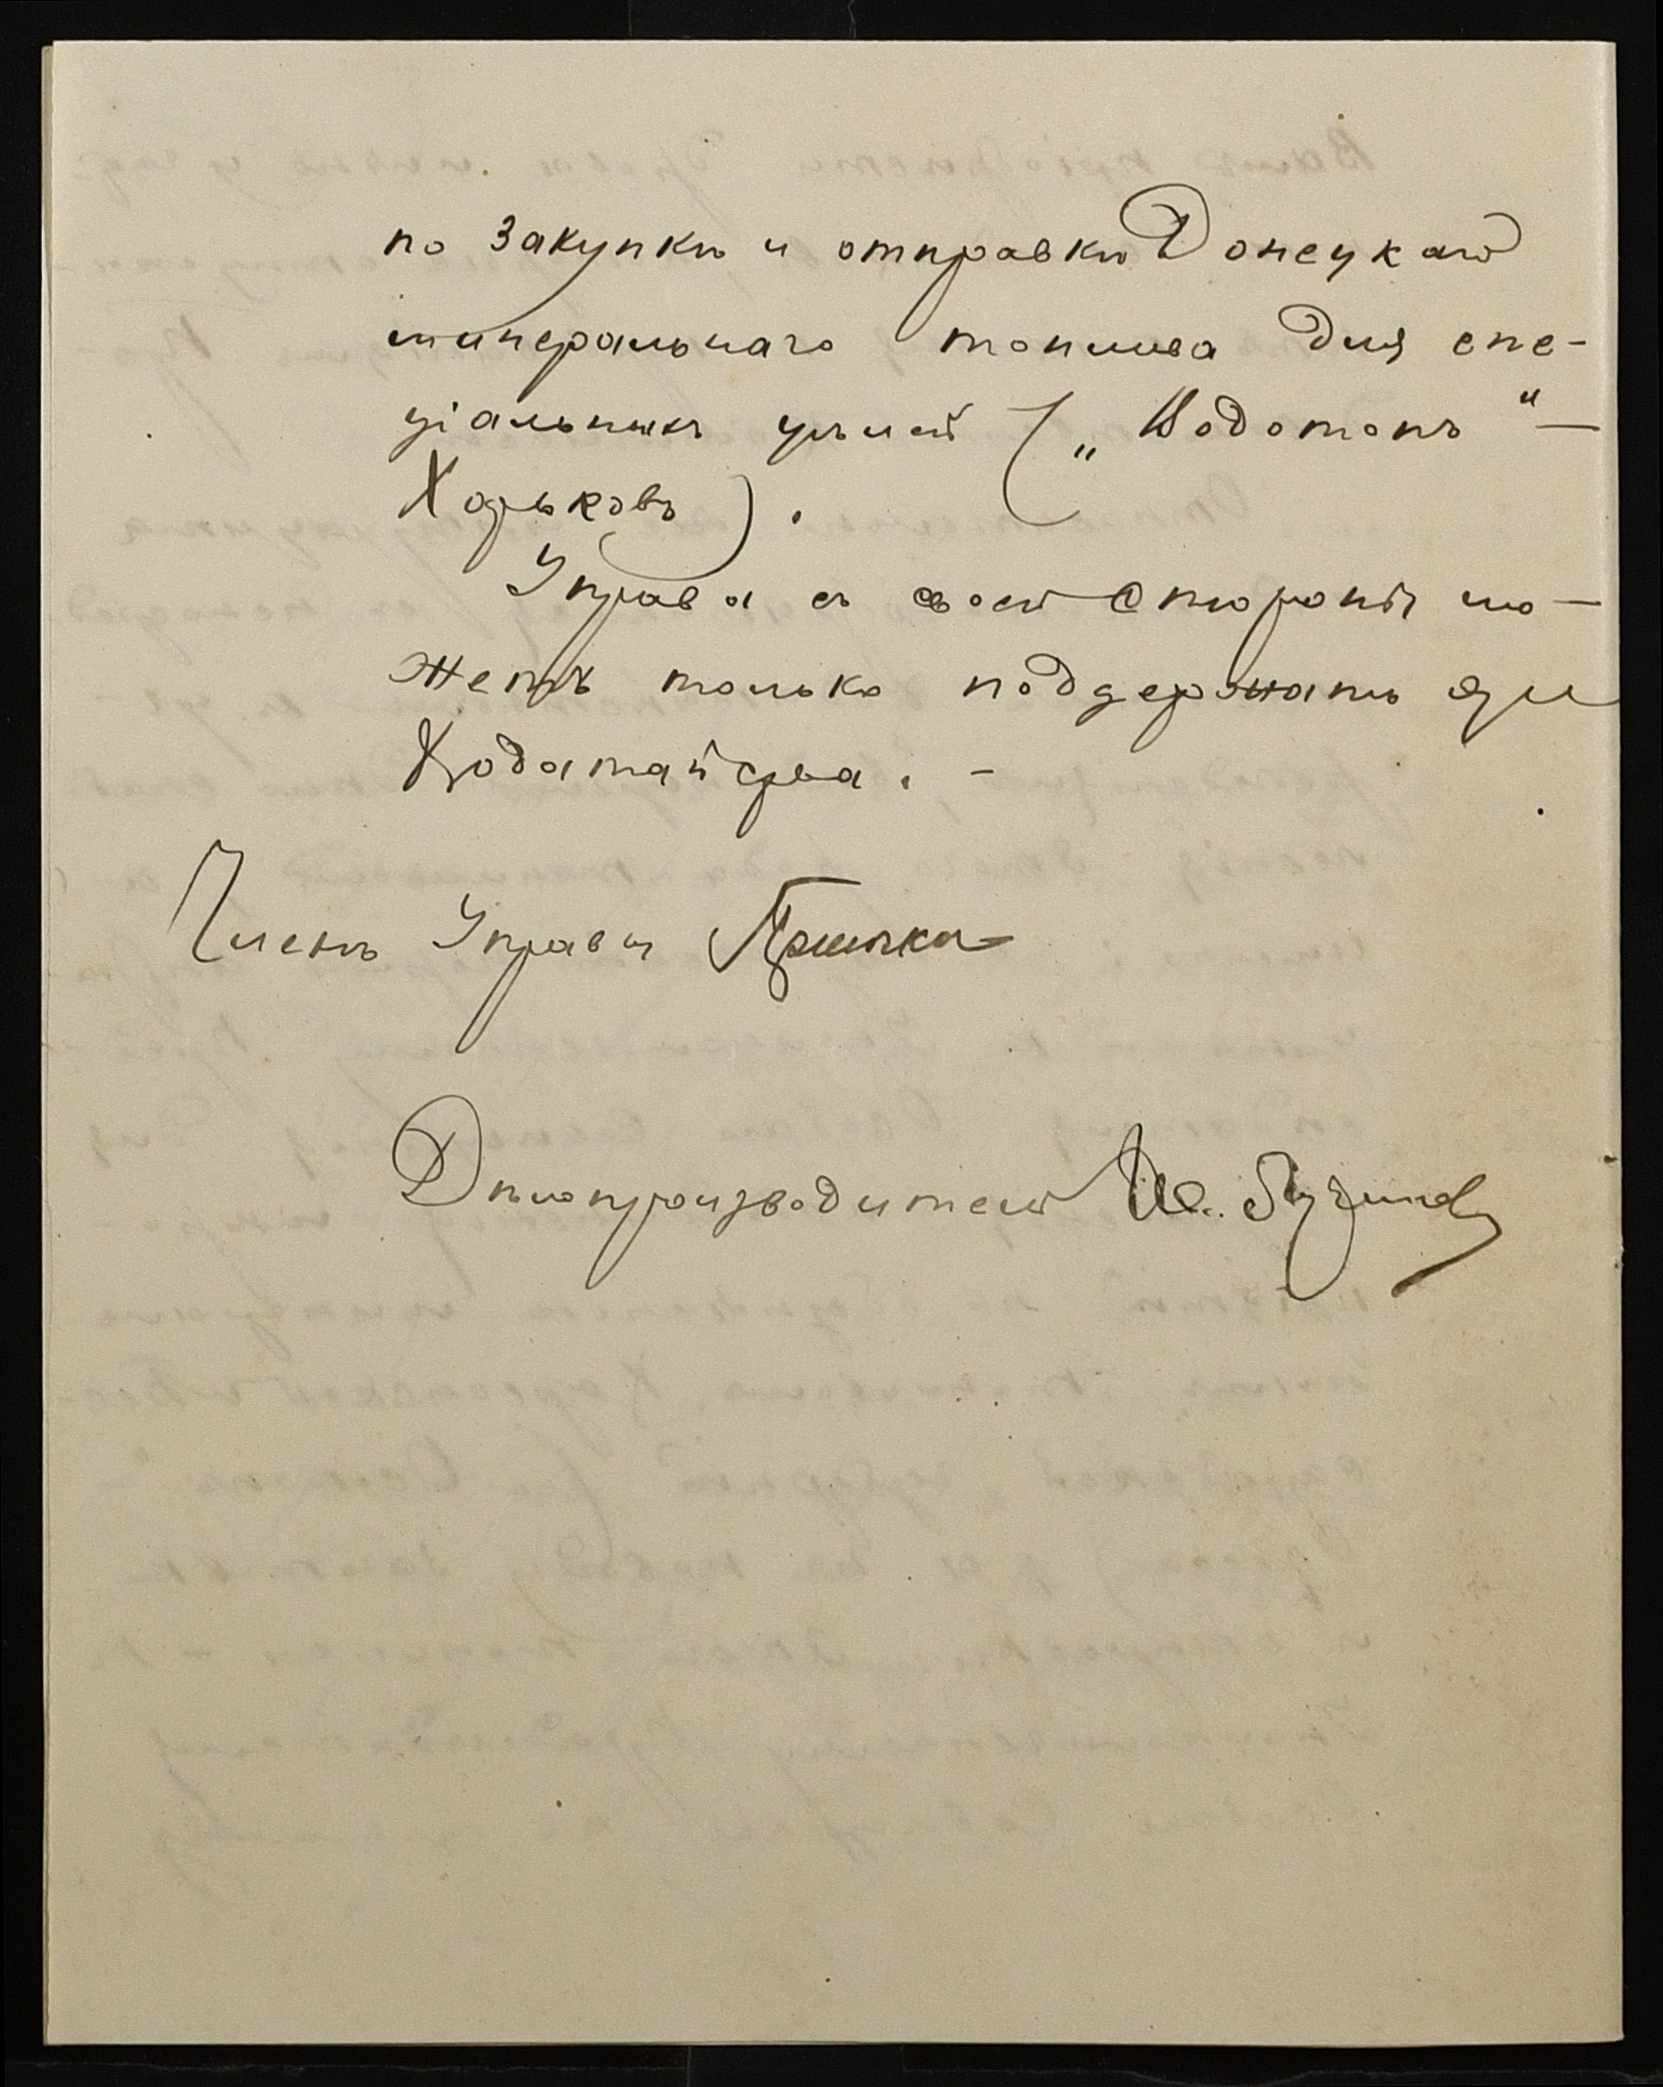 по закупкѣ и отправкѣ Донецкаго
минеральнаго топлива для спе-
ціальныхъ цѣлей („Водотопъ" —
Харьковъ).
Управа съ своей стороны мо-
жетъ только поддержать эти
Ходатайства. -
Членъ Управы
Дѣлопроизводитель И.